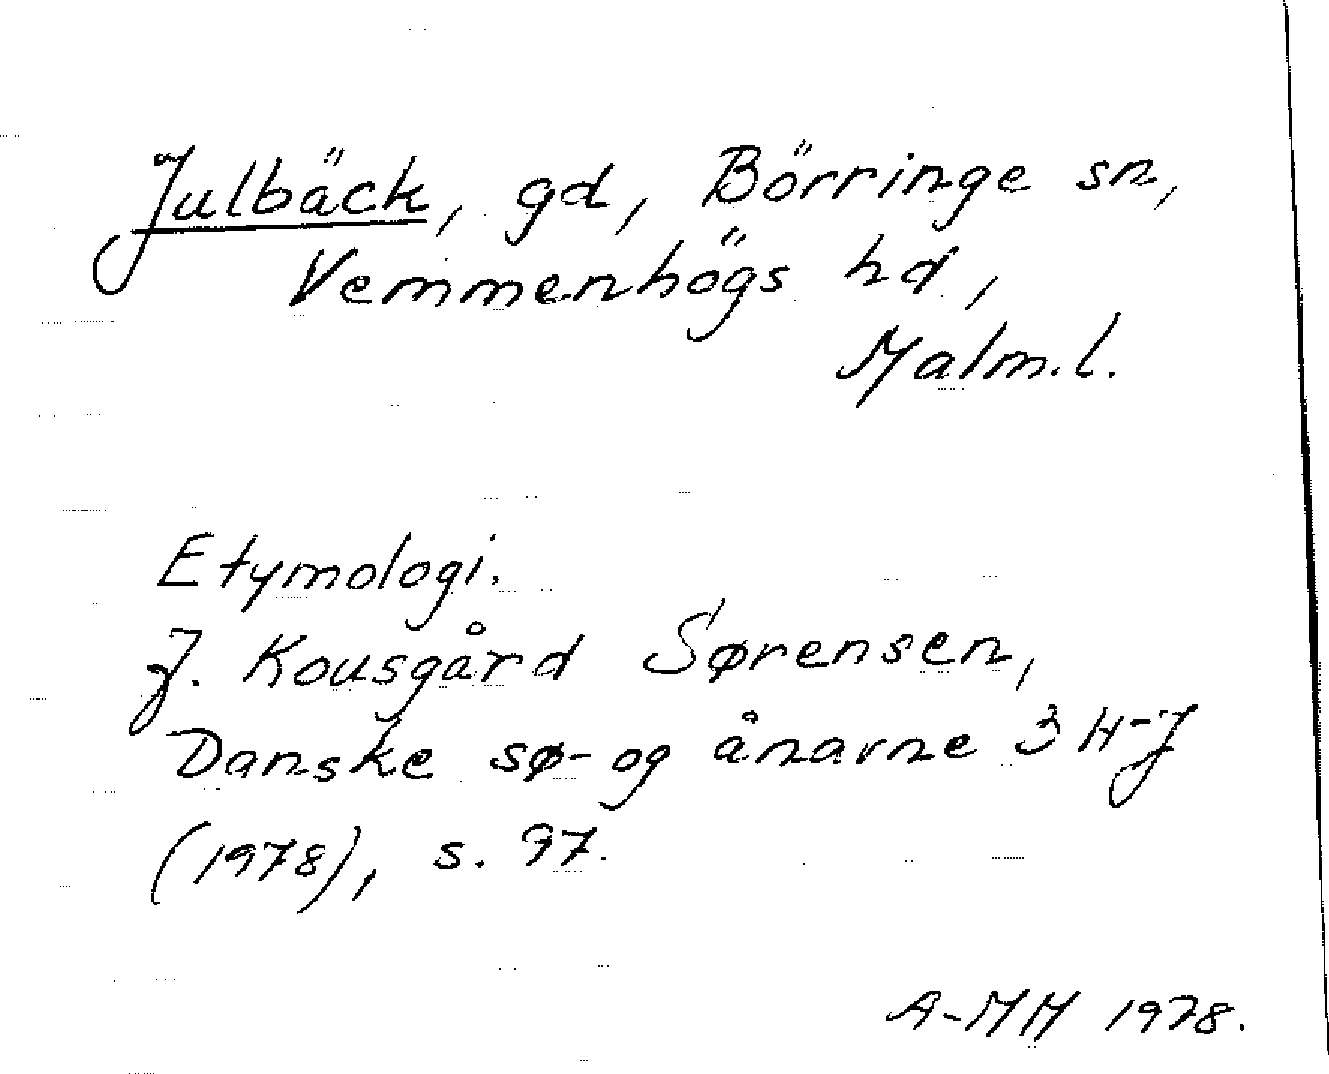 Julbäck, gd, Börringe sn,
Vemmenhögs hd,
Malm.l.
Etymologi.
J. Kousgård Sørensen,
Danske sø- og ånavne 3 H-J
(1978), s. 97.
A-MH 1978.